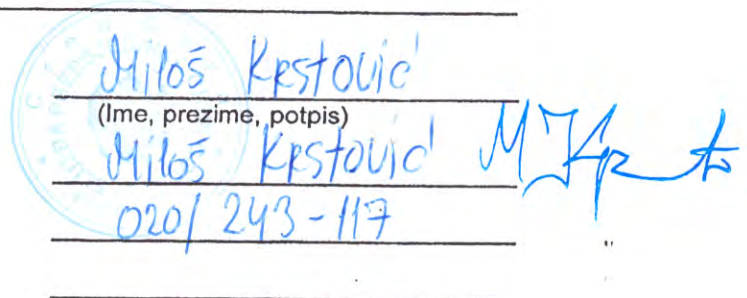 Miloš Krstović
(Ime, prezime, potpis)
Miloš Krstović
020/ 243-117